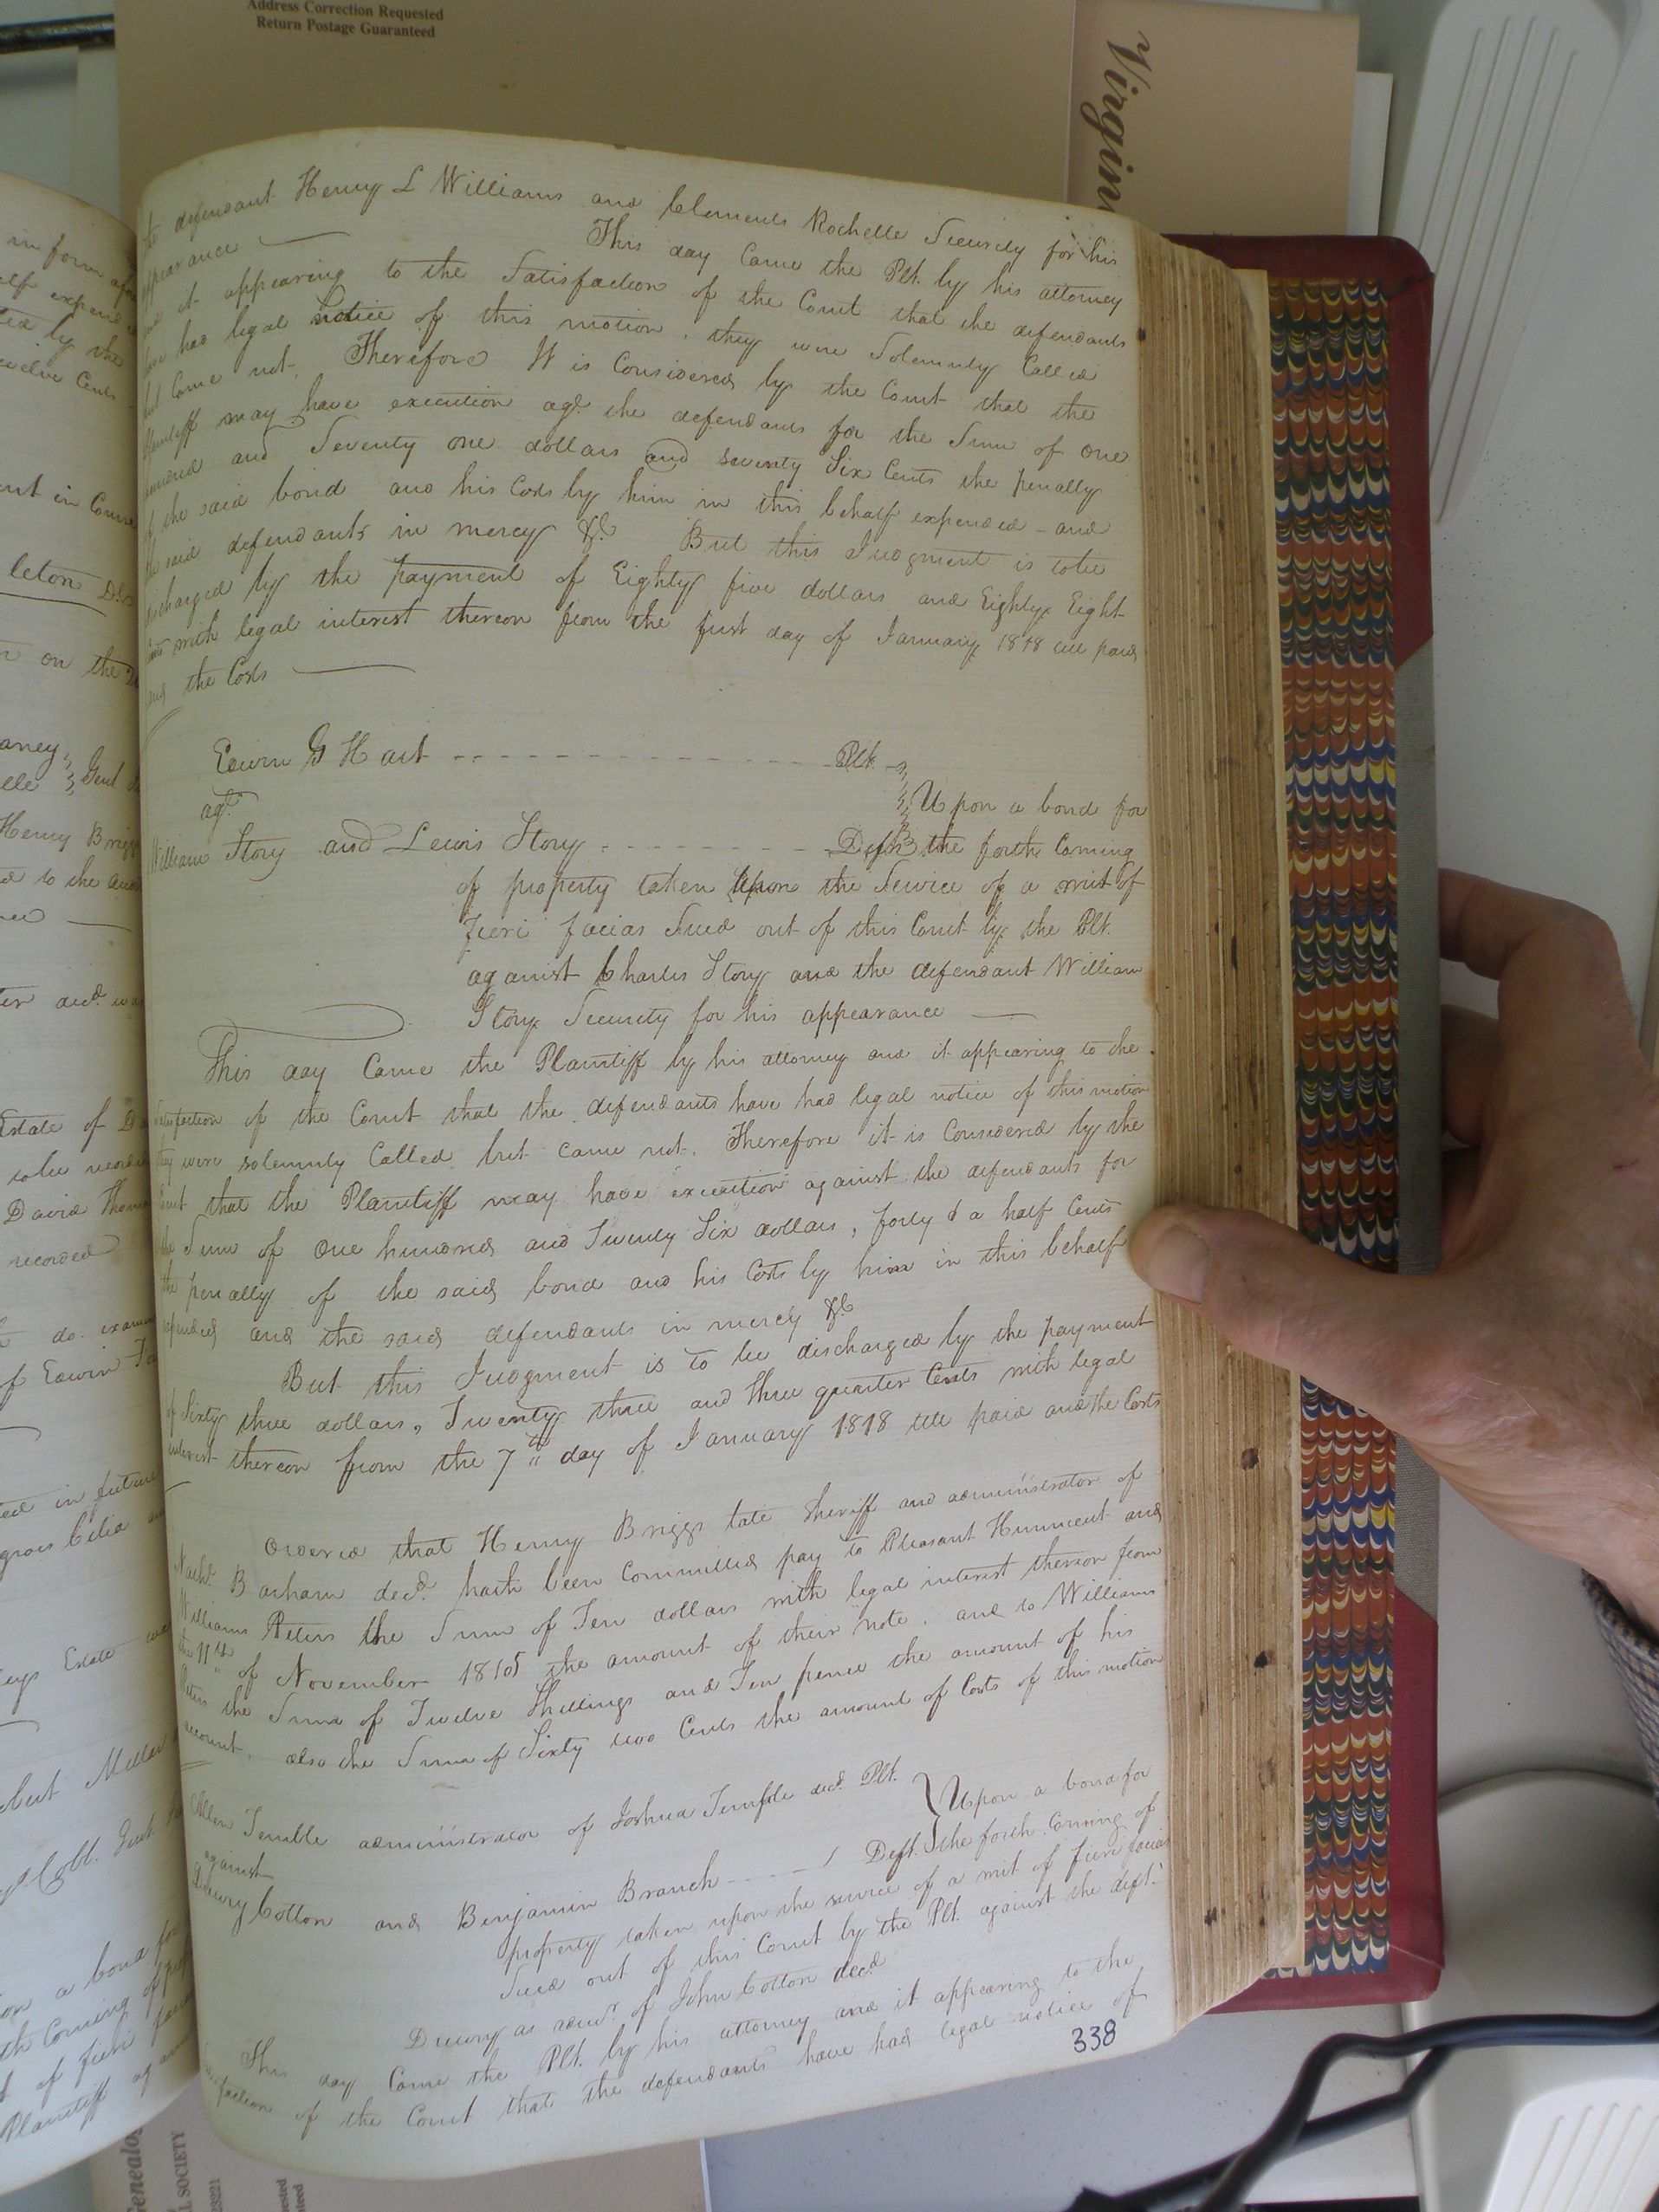 Address Correction Requested
Return Postage Guaranteed
Virgin
the defendant Henry L Williams and Clements Rochelle Security for his
appearance
This day Came the Plt. by his attorney
and it appearing to the Satisfaction of the Court that the defendants
have had legal Notice of this motion, they were Solemnly Called
but Came not. Therefore It is Considered by the Court that the
plaintiff may have execution agt. the defendants for the Sum of One
hundred and Seventy one dollars and seventy Six Cents the penalty
of the said bond and his Costs by him in this behalf expended - and
the said defendants in mercy &c But this Judgment is to be
discharged by the payment of Eighty five dollars and Eighty Eight
Cents with legal interest thereon from the first day of January 1818 till paid
and the Costs
Edwin G Hart Plt.
agt.
Upon a bond for
William Story and Lewis Story Defts the forth Coming
of property taken Upon the Service of a writ of
fieri facias Sued out of this Court by the Plt.
against Charles Story and the defendant William
Story Security for his appearance
This day Came the Plaintiff by his attorney and it appearing to the
Satisfaction of the Court that the defendants have had legal notice of this motion
they were solemnly Called but came not. Therefore it is Considered by the
Court that the Plaintiff may have execution against the defendants for
the Sum of One hundred and Twenty Six dollars, forty & a half Cents
the penalty of the said bond and his Costs by him in this behalf
expended and the said defendants in mercy &c
But this Judgment is to be discharged by the payment
of Sixty three dollars, Twenty three and three quarter Cents with legal
interest thereon from the 7th day of January 1818 till paid and the Costs
Ordered that Henry Briggs late Sheriff and administrator of
Nathl. Barham decd. hath been Committed pay to Pleasant Hunnicut and
Williams Peters the Sum of Ten dollars with legal interest thereon from
the 11th of November 1815 the amount of their note, and to Williams
Peters the Sum of Twelve Shillings and Ten pence the amount of his
account, also the Sum of Sixty two Cents the amount of Costs of this motion
Allen Temble administrator of Joshua Temple decd. Plt.
against
Upon a bond for
Drewry Cotton and Benjamin Branch Deft. the forth Coming of
property taken upon the service of a writ of fieri facias
Sued out of this Court by the Plt. against the deft.
Drewry as admr. of John Cotton decd
This day Came the Plt. by his attorney and it appearing to the
Satisfaction of the Court that the defendants have had legal notice of
338
in form
self expend
by the
twelve Cents
leton
on the
Henry Brig
to the
Estate of
to be recorded
David Thom
recorded
do. exam
of Edwin
in future
Estate
a bond for
th Coming of
of fieri
Plaintiff
Genealog
L SOCIETY
23221